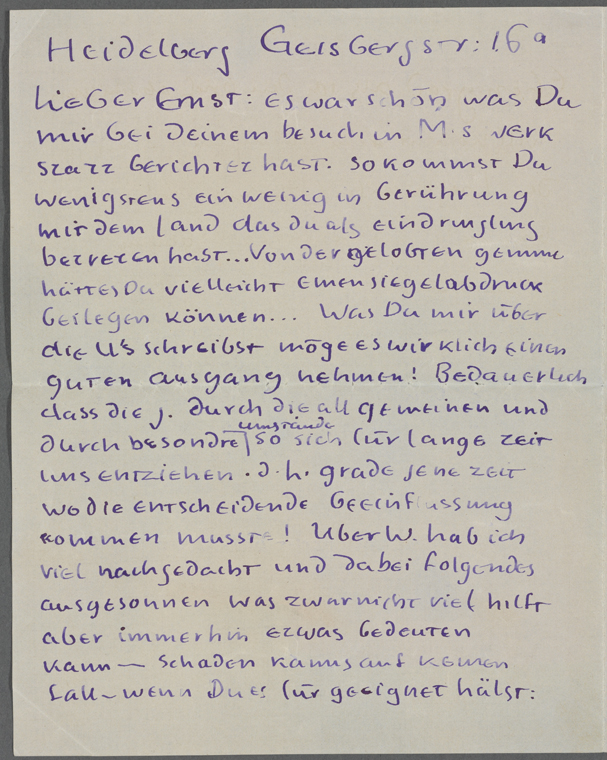 Heidelberg Geisbergstr: 16a
Lieber Ernst: es war schön was Du
mir bei deinem besuch in M.s werk
statt berichtet hast. so kommst Du
wenigstens ein wenig in berührung
mit dem land das du als eindringling
betreten hast... Von der gelobten gemme
hättes Du vielleicht einen siegelabdruck
beilegen können... Was Du mir über
die U's schreibst möge es wirklich einen
guten ausgang nehmen! Bedauerlich
dass die J. durch die allgemeinen und
durch besondre umstände so sich für lange zeit
uns entziehen. d.h. grade jene zeit
wo die entscheidende beeinflussung
kommen musste! Über W. hab ich
viel nachgedacht und dabei folgendes
ausgesonnen was zwar nicht viel hilft
aber immerhin etwas bedeuten
kann — schaden kanns auf keinen
fall — wenn Du es für geeignet hälst: